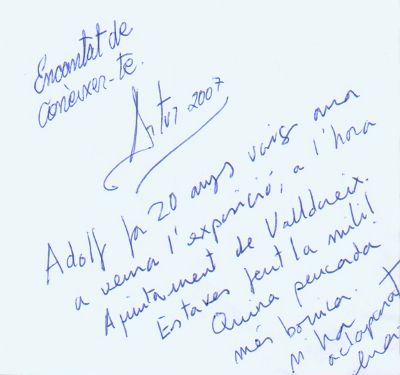 Encantat de
conèixer-te.
Artur 2007
Adolf fa 20 anys vaig anar
a veure l'exposició, a l'hora
Ajuntament de Valldoreix.
Estaves fent la mili!
Quina pencada
més bonica.
M'ha aclaparat